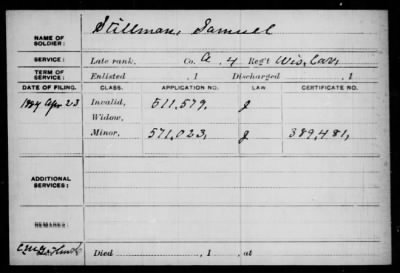 NAME OF SOLDIER: Stillman, Samuel
SERVICE: Late rank, Co. A, 4 Reg't Wis. Cav.
TERM OF SERVICE: Enlisted , 1 Discharged , 1
DATE OF FILING. CLASS. APPLICATION NO. LAW. CERTIFICATE NO.
1884 Apr 23 Invalid, 511,579, J
Widow,
Minor, 571,023, J 389,481,
ADDITIONAL SERVICES:
REMARKS:
Died , 1 , at